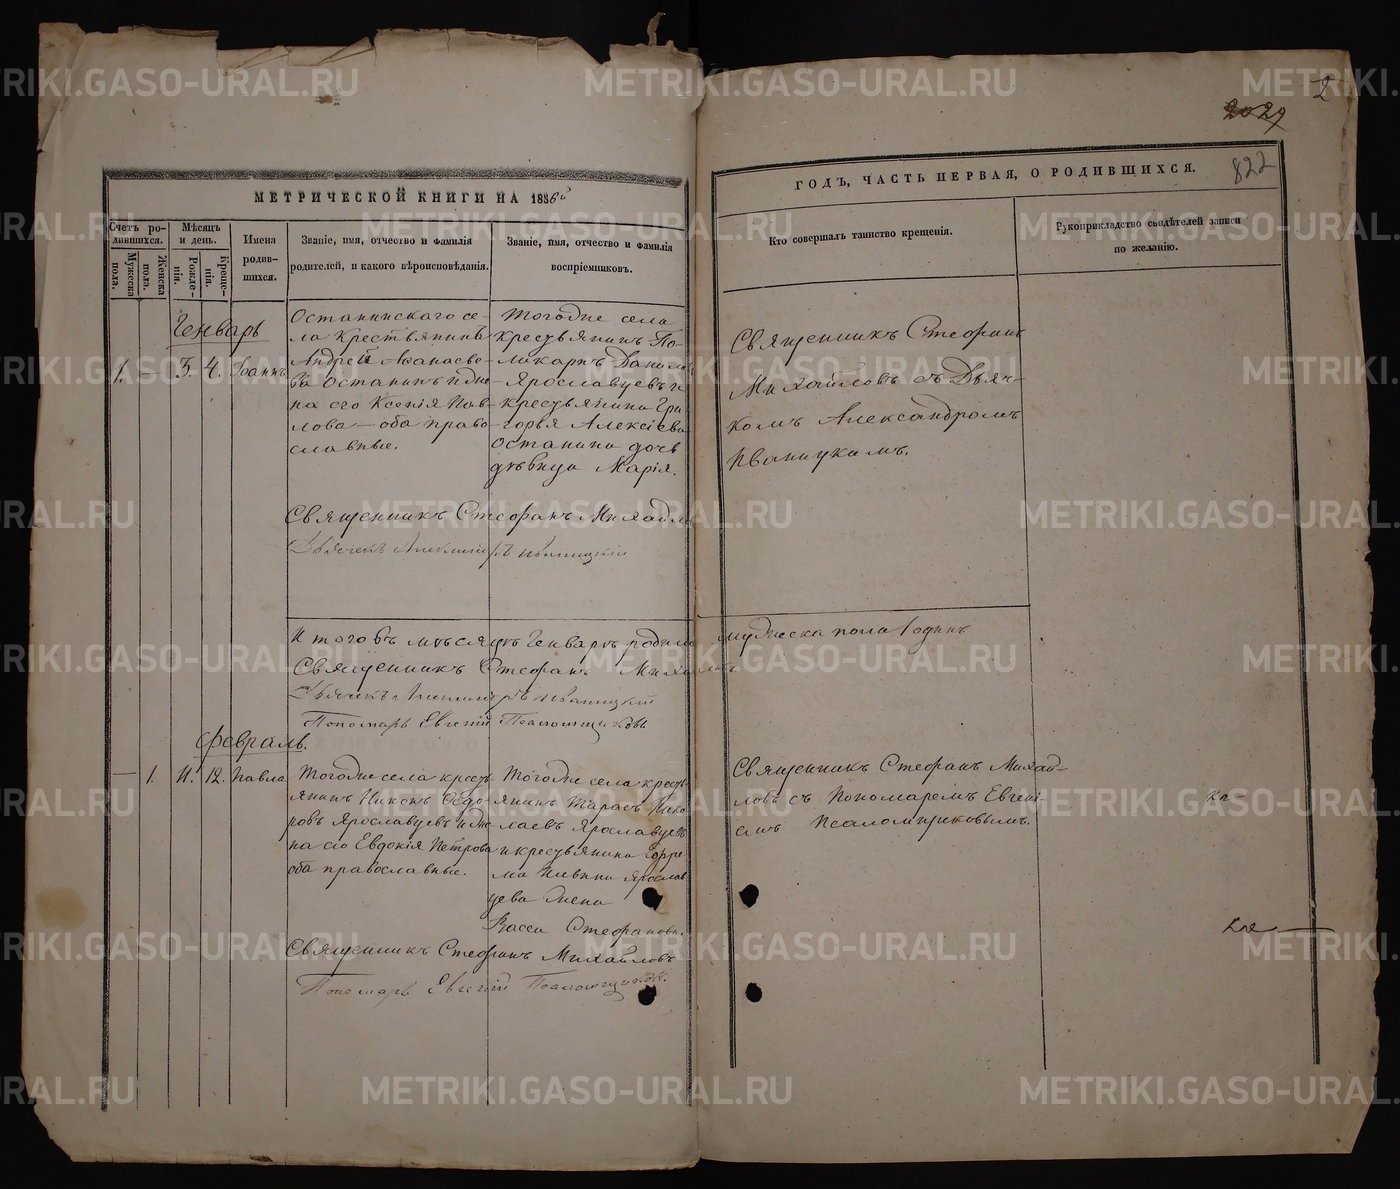 2
2029
822
МЕТРИЧЕСКОЙ КНИГИ НА 1886й
ГОДЪ, ЧАСТЬ ПЕРВАЯ, О РОДИВШИХСЯ.
Счетъ ро-
дившихся.
Мужеска
пола.
Женска
пола.
Мѣсяцъ
и день.
Рожде-
нія.
Креще-
нія.
Имена
родив-
шихся.
Званіе, имя, отчество и фамилія
родителей, и какого вѣроисповѣданія.
Званіе, имя, отчество и фамилія
воспріемниковъ.
Кто совершалъ таинство крещенія.
Рукоприкладство свидѣтелей записи
по желанію.
Генварь
1. — 3. 4. Іоаннъ
Останинскаго се-
ла Крестьянинъ
Андрей Аѳанасье-
въ Останинъ и же-
на его Ксенія Пав-
лова — оба право-
славные.
Тогоже села
крестьянинъ По-
ликарпъ Данилов
Ярославцевъ и
крестьянина Гри-
горья Алексіева
Останина дочь
дѣвица Марія.
Священникъ Стефанъ
Михайловъ съ Дьяч-
комъ Александромъ
Иваницкимъ.
Священникъ Стефанъ Михайловъ
Дьячекъ Александръ Иваницкій
Итого въ мѣсяцѣ Генварѣ родилось мужеска пола 1 одинъ
Священникъ Стефанъ Михайловъ
Дьячекъ Александръ Иваницкій
Пономарь Евгеній Псаломщиковъ
Февраль.
— 1. 11. 12. Павла
Тогоже села кресть-
янинъ Никонъ Ѳедо-
ровъ Ярославцевъ и же-
на его Евдокія Петрова
оба православные.
Тогоже села кресть-
янинъ Тарасъ Нико-
лаевъ Ярославцевъ
и крестьянина
Ярослав-
цева жена
Васса Стефанова.
Священникъ Стефанъ Михай-
ловъ съ Пономаремъ Евгені-
емъ Псаломщиковымъ.
Священникъ Стефанъ Михайловъ
Пономарь Евгеній Псаломщиковъ.
METRIKI.GASO-URAL.RU